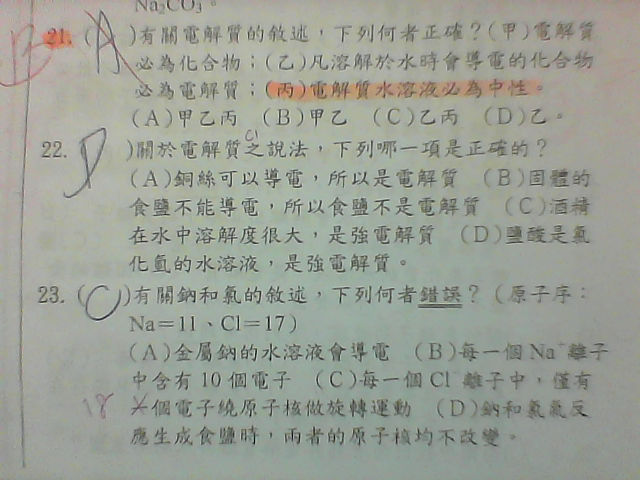 Na₂CO₃。
B 21. (A)有關電解質的敘述，下列何者正確？(甲)電解質
必為化合物；(乙)凡溶解於水時會導電的化合物
必為電解質；(丙)電解質水溶液必為中性。
(A)甲乙丙 (B)甲乙 (C)乙丙 (D)乙。
Cl
22. (D)關於電解質之說法，下列哪一項是正確的？
(A)銅絲可以導電，所以是電解質 (B)固體的
食鹽不能導電，所以食鹽不是電解質 (C)酒精
在水中溶解度很大，是強電解質 (D)鹽酸是氯
化氫的水溶液，是強電解質。
23. (C)有關鈉和氯的敘述，下列何者錯誤？(原子序：
Na=11、Cl=17)
(A)金屬鈉的水溶液會導電 (B)每一個Na⁺離子
中含有10個電子 (C)每一個Cl⁻離子中，僅有
18 個電子繞原子核做旋轉運動 (D)鈉和氯氣反
應生成食鹽時，兩者的原子核均不改變。